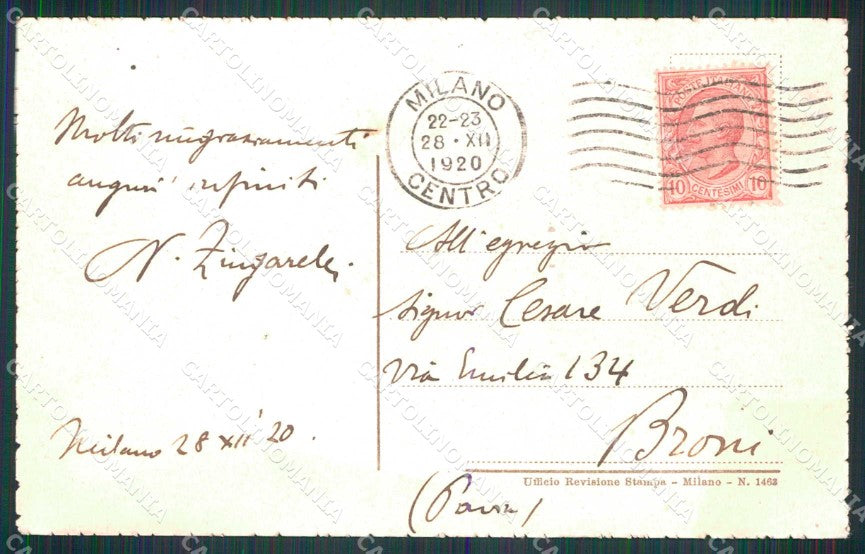 MILANO
22-23
28 · XII
1920
CENTRO
POSTE ITALIANE
10 CENTESIMI 10
Molti ringraziamenti
auguri infiniti
N. Zingarelli
Milano 28 XII '20.
All'egregio
Signor Cesare Verdi
Via Emilia 134
Broni
(Pavia)
Ufficio Revisione Stampa - Milano - N. 1463
CARTOLINOMANIA